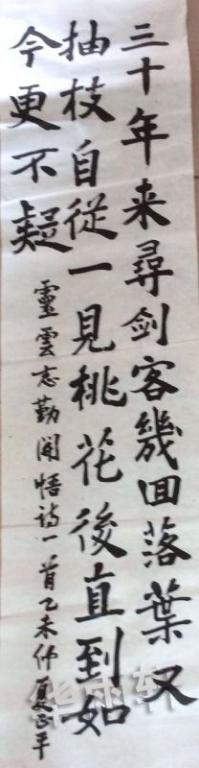 三十年来尋剑客幾回落葉又
抽枝自従一見桃花後直到如
今更不疑
靈雲志勤開悟诗一首乙未仲夏正平